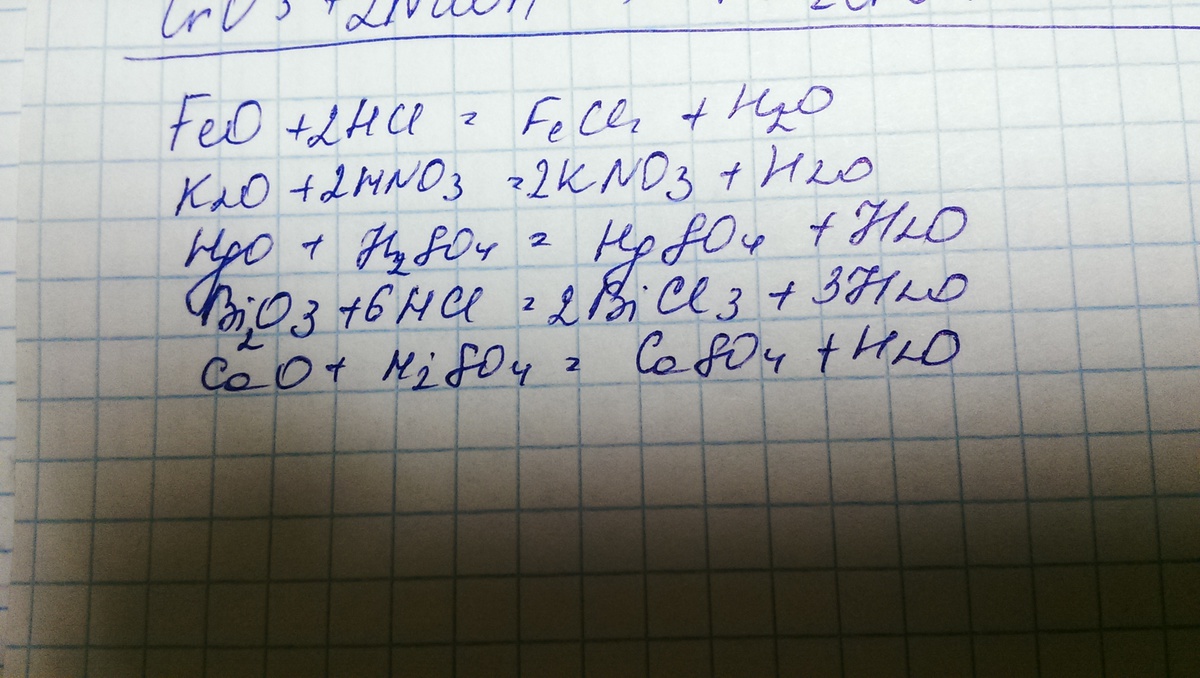 FeO + 2HCl = FeCl2 + H2O
K2O + 2HNO3 = 2KNO3 + H2O
HgO + H2SO4 = HgSO4 + H2O
Bi2O3 + 6HCl = 2BiCl3 + 3H2O
CaO + H2SO4 = CaSO4 + H2O